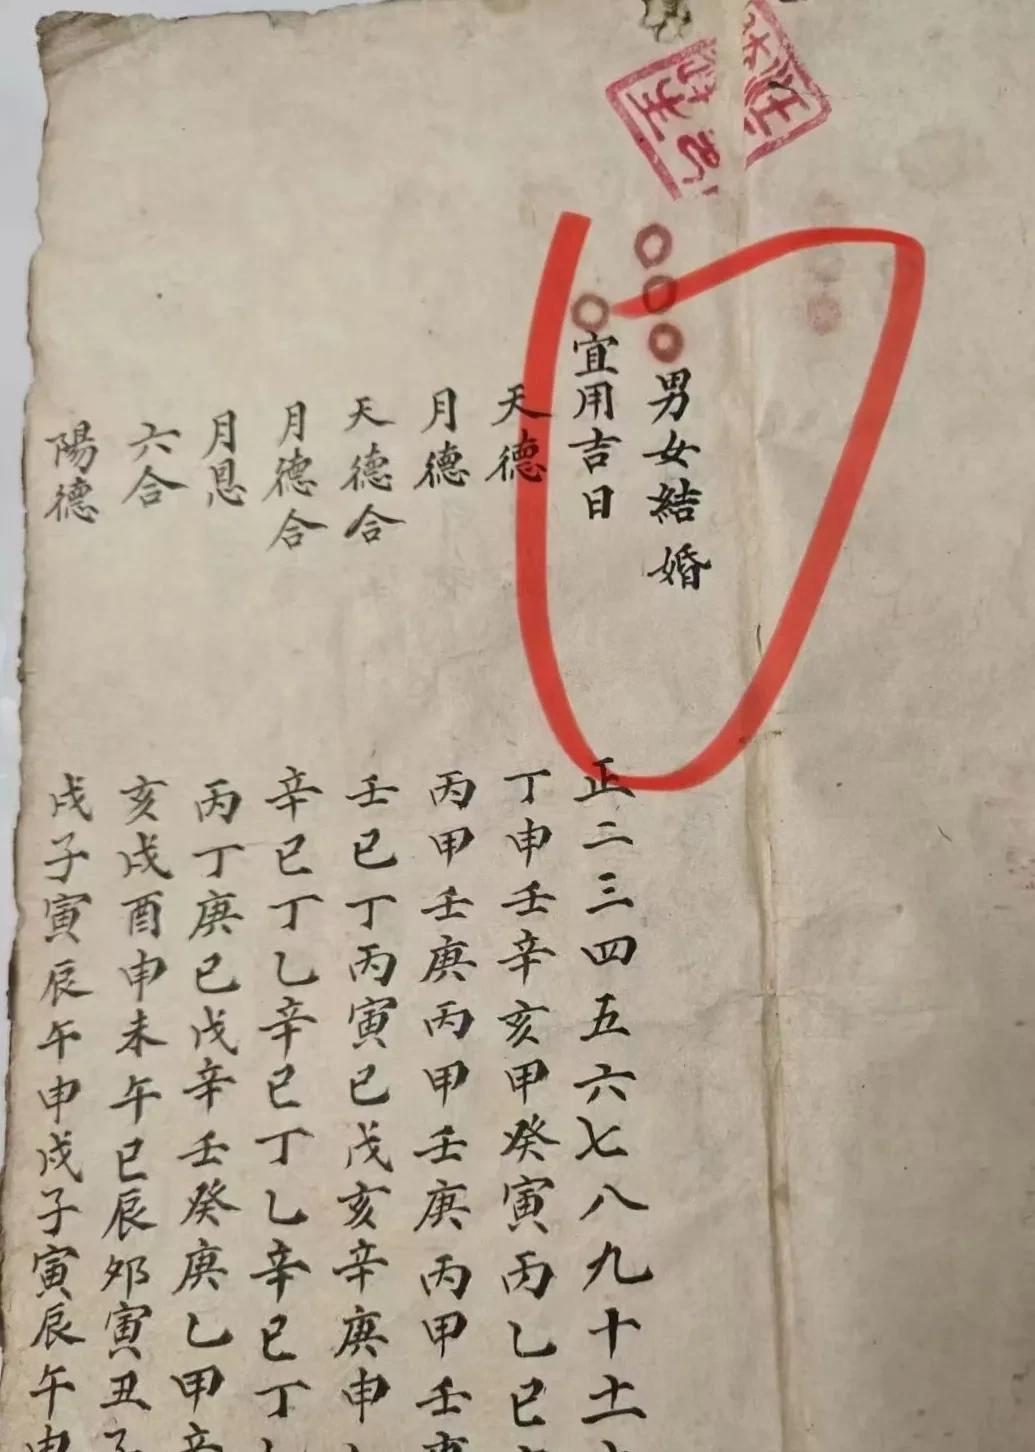 男女結婚
宜用吉日
正二三四五六七八九十十一
天德 丁申壬辛亥甲癸寅丙乙巳
月德 丙甲壬庚丙甲壬庚丙甲壬庚
天德合 壬巳丁丙寅己戊亥辛庚申
月德合 辛己丁乙辛己丁乙辛己丁
月恩 丙丁庚己戊辛壬癸庚乙甲辛
六合 亥戌酉申未午巳辰卯寅丑子
陽德 戌子寅辰午申戌子寅辰午申